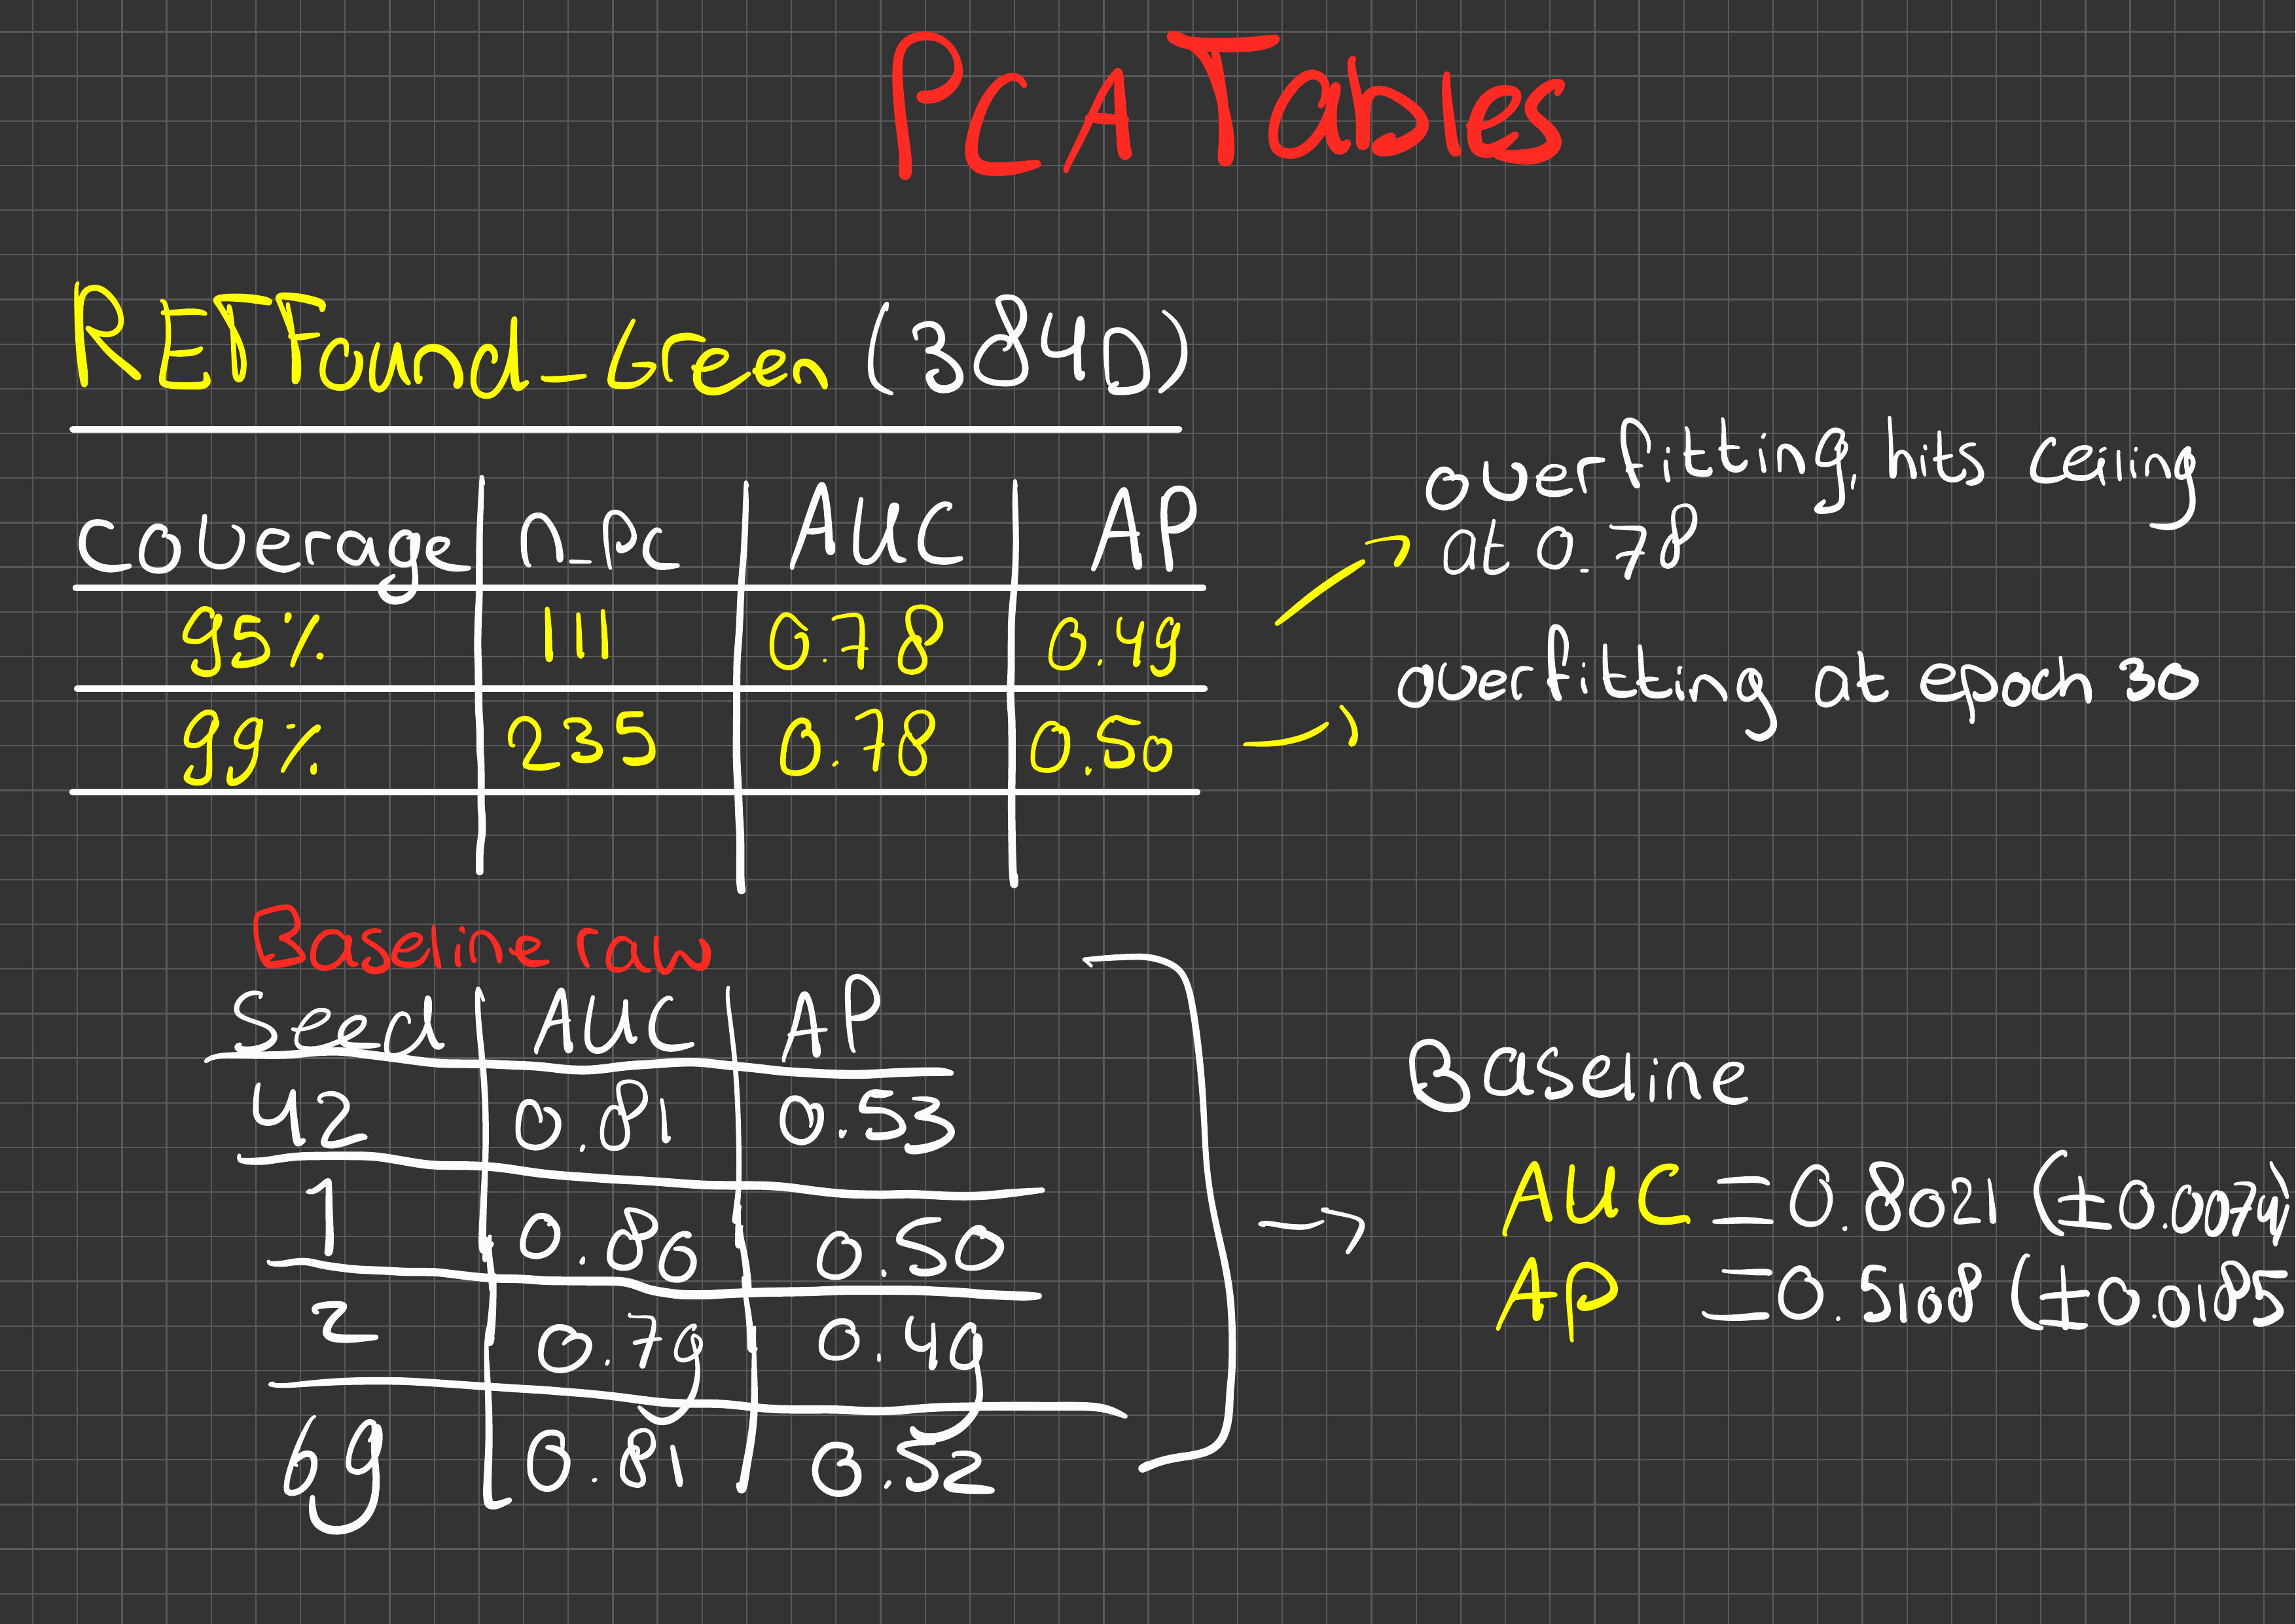 PCA Tables
RETFound_Green (384D)
coverage n_pc AUC AP
95% 111 0.78 0.49
99% 235 0.78 0.50
overfitting, hits ceiling
at 0.78
overfitting at epoch 30
Baseline raw
Seed AUC AP
42 0.81 0.53
1 0.80 0.50
2 0.79 0.49
69 0.81 0.52
Baseline
AUC = 0.8021 (±0.0074)
AP = 0.5108 (±0.0185